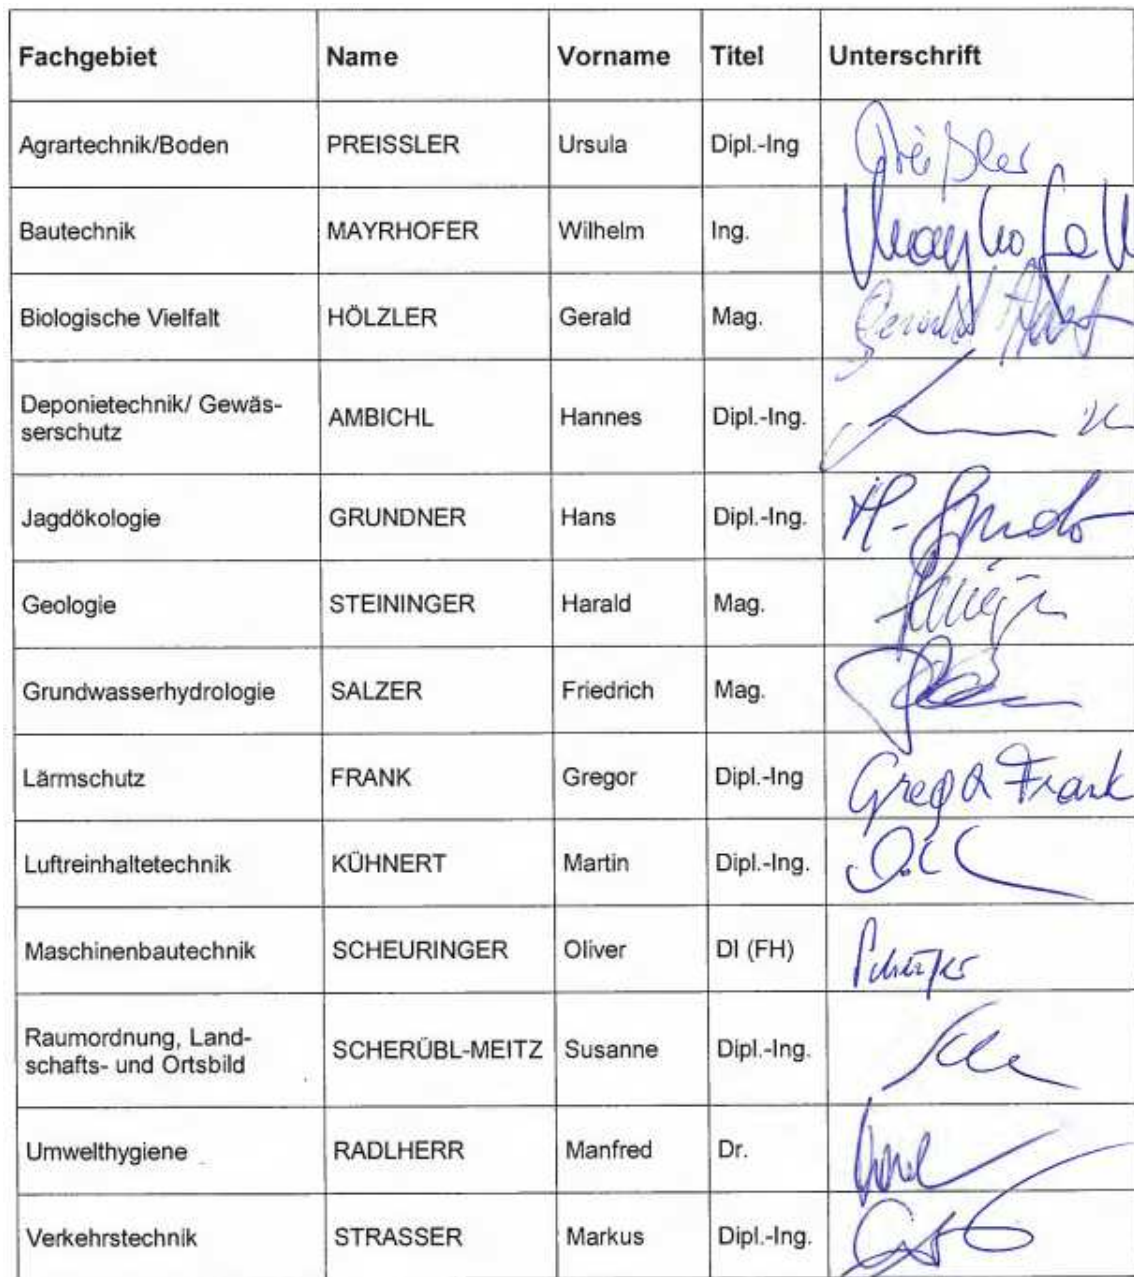 Fachgebiet Name Vorname Titel Unterschrift
Agrartechnik/Boden PREISSLER Ursula Dipl.-Ing Preißler
Bautechnik MAYRHOFER Wilhelm Ing.
Biologische Vielfalt HÖLZLER Gerald Mag. Gerald
Deponietechnik/ Gewäs-
serschutz AMBICHL Hannes Dipl.-Ing.
Jagdökologie GRUNDNER Hans Dipl.-Ing.
Geologie STEININGER Harald Mag.
Grundwasserhydrologie SALZER Friedrich Mag.
Lärmschutz FRANK Gregor Dipl.-Ing Gregor Frank
Luftreinhaltetechnik KÜHNERT Martin Dipl.-Ing.
Maschinenbautechnik SCHEURINGER Oliver DI (FH)
Raumordnung, Land-
schafts- und Ortsbild SCHERÜBL-MEITZ Susanne Dipl.-Ing.
Umwelthygiene RADLHERR Manfred Dr.
Verkehrstechnik STRASSER Markus Dipl.-Ing.